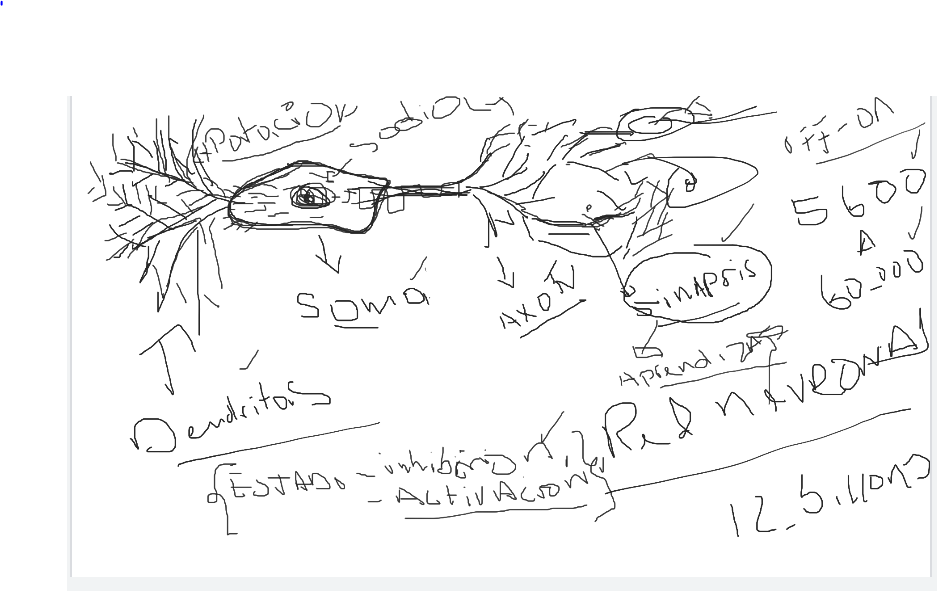 Potasiok
sodio
off-on
5600
A
60_000
Soma
AXON
sinApsis
AprendizAJ
Dendritas
Red NEVRONAl
ESTADO - inhibision
- ACtiVACION
12_billons